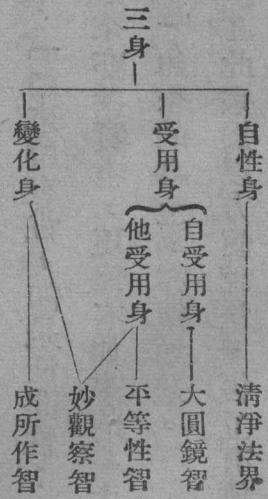 三身
自性身
受用身
變化身
自受用身
他受用身
清淨法界
大圓鏡智
平等性智
妙觀察智
成所作智